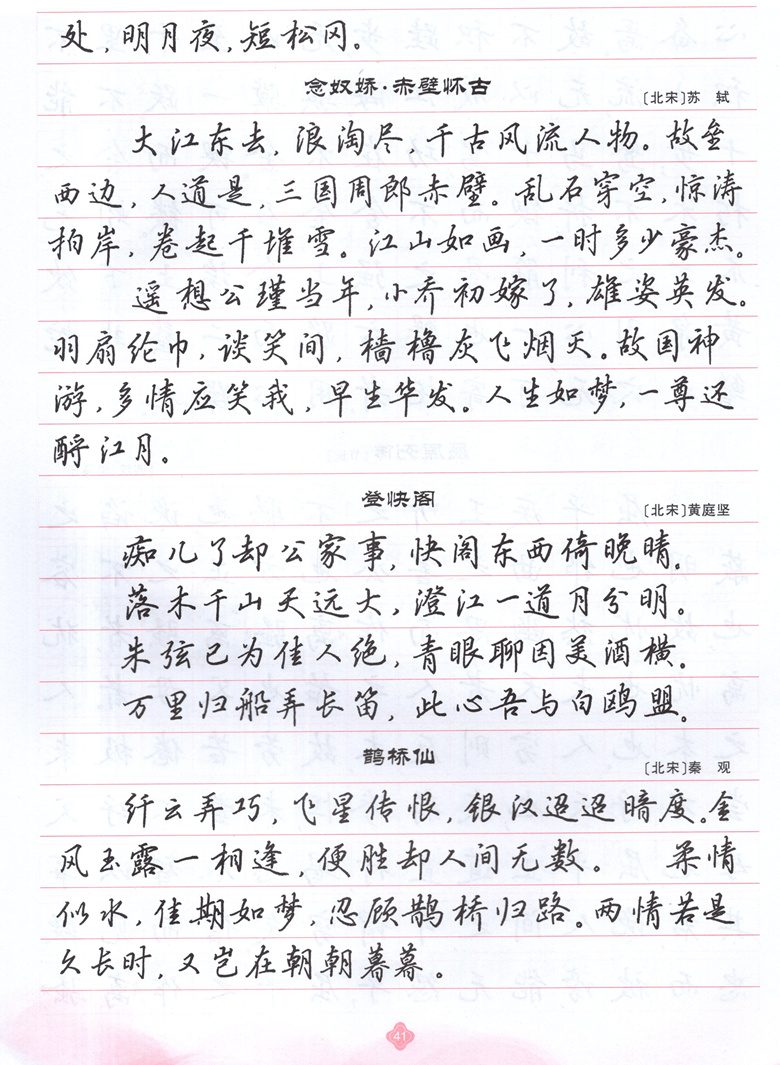 处，明月夜，短松冈。
念奴娇·赤壁怀古
〔北宋〕苏 轼
大江东去，浪淘尽，千古风流人物。故垒
西边，人道是，三国周郎赤壁。乱石穿空，惊涛
拍岸，卷起千堆雪。江山如画，一时多少豪杰。
遥想公瑾当年，小乔初嫁了，雄姿英发。
羽扇纶巾，谈笑间，樯橹灰飞烟灭。故国神
游，多情应笑我，早生华发。人生如梦，一尊还
酹江月。
登快阁
〔北宋〕黄庭坚
痴儿了却公家事，快阁东西倚晚晴。
落木千山天远大，澄江一道月分明。
朱弦已为佳人绝，青眼聊因美酒横。
万里归船弄长笛，此心吾与白鸥盟。
鹊桥仙
〔北宋〕秦 观
纤云弄巧，飞星传恨，银汉迢迢暗度。金
风玉露一相逢，便胜却人间无数。 柔情
似水，佳期如梦，忍顾鹊桥归路。两情若是
久长时，又岂在朝朝暮暮。
41